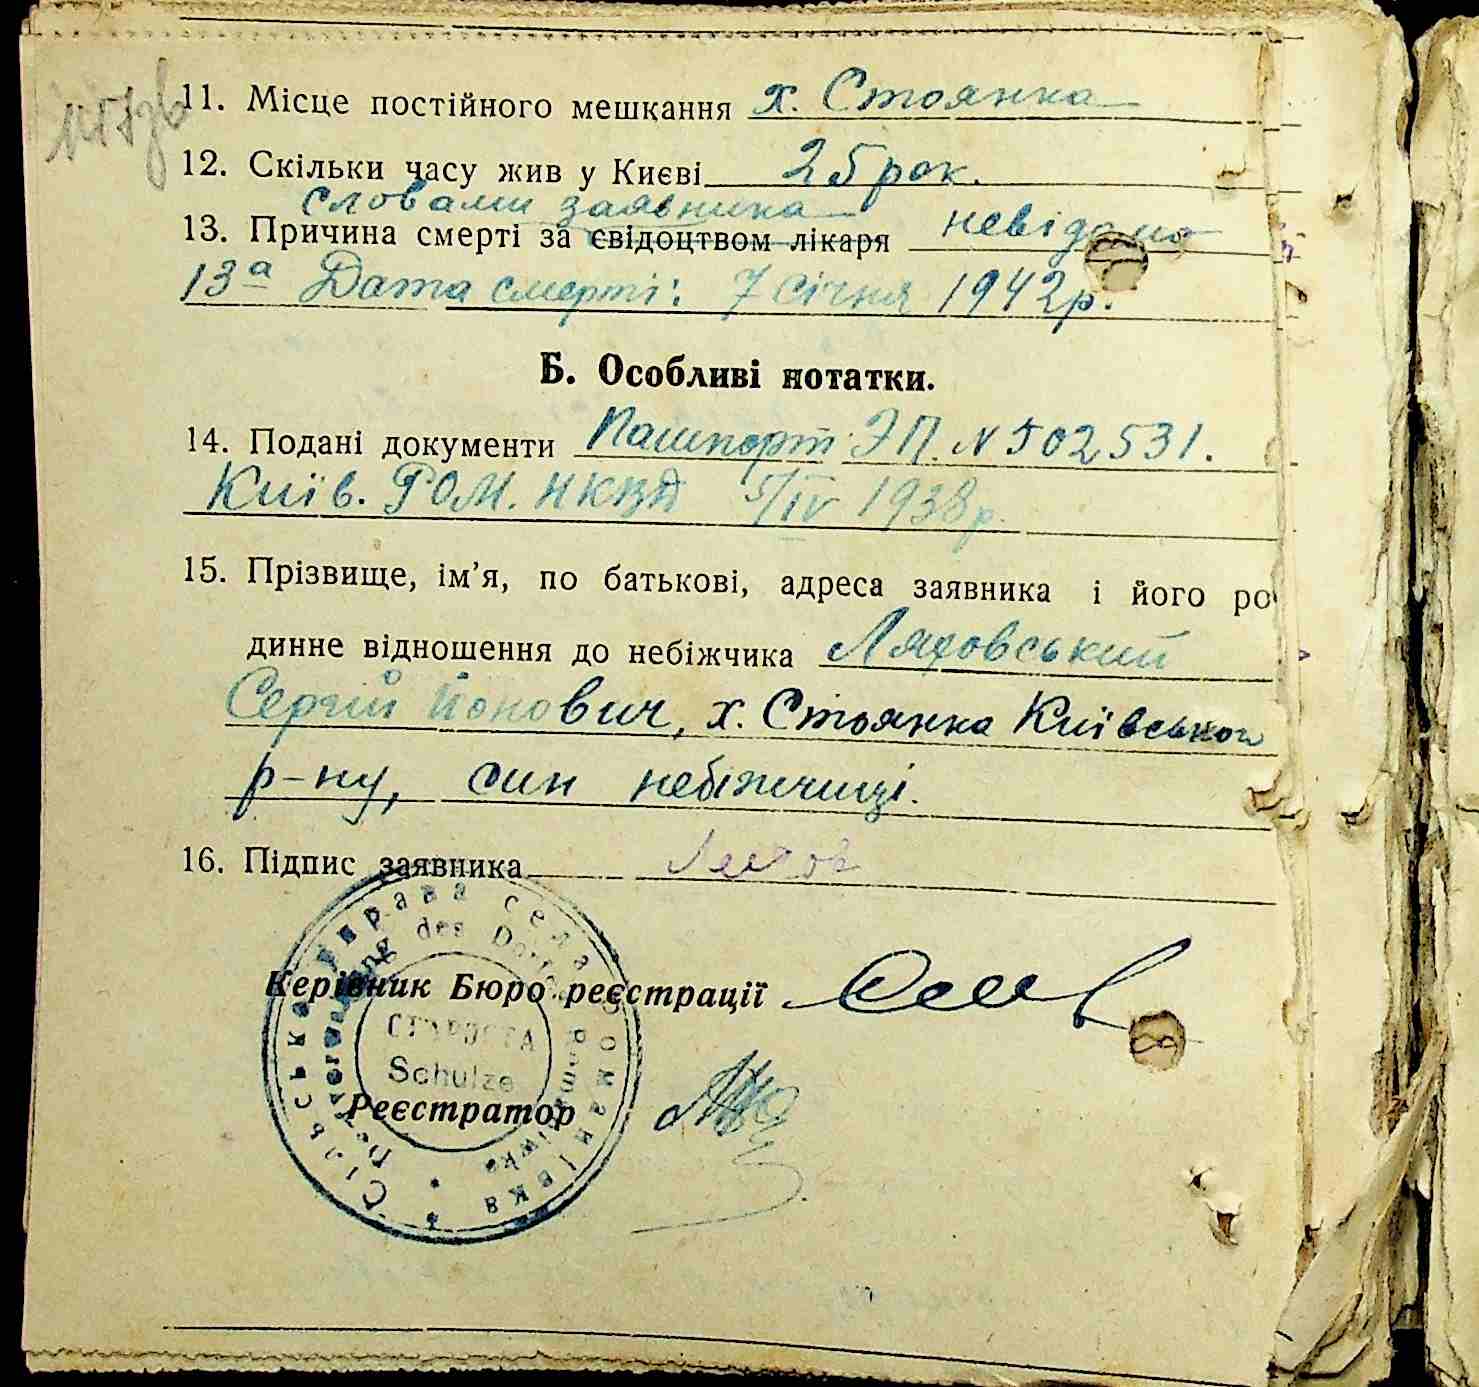 11. Місце постійного мешкання х. Стоянка
12. Скільки часу жив у Києві 25 рок.
словами заявника
13. Причина смерті за свідоцтвом лікаря невідома
13а Дата смерті: 7 січня 1942 р.
Б. Особливі нотатки.
14. Подані документи Пашпорт ЭП. N 502531.
Київ. РОМ. НКВД 5/IV 1938 р.
15. Прізвище, ім'я, по батькові, адреса заявника і його ро
динне відношення до небіжчика Ляховський
Сергій Йонович, х. Стоянка Київського
р-ну, син небіжчиці.
16. Підпис заявника Ляхов
Керівник Бюро реєстрації
Реєстратор
Сільська управа села Романівка
Verwaltung des Dorfes Romaniwka
СТАРОСТА
Schulze